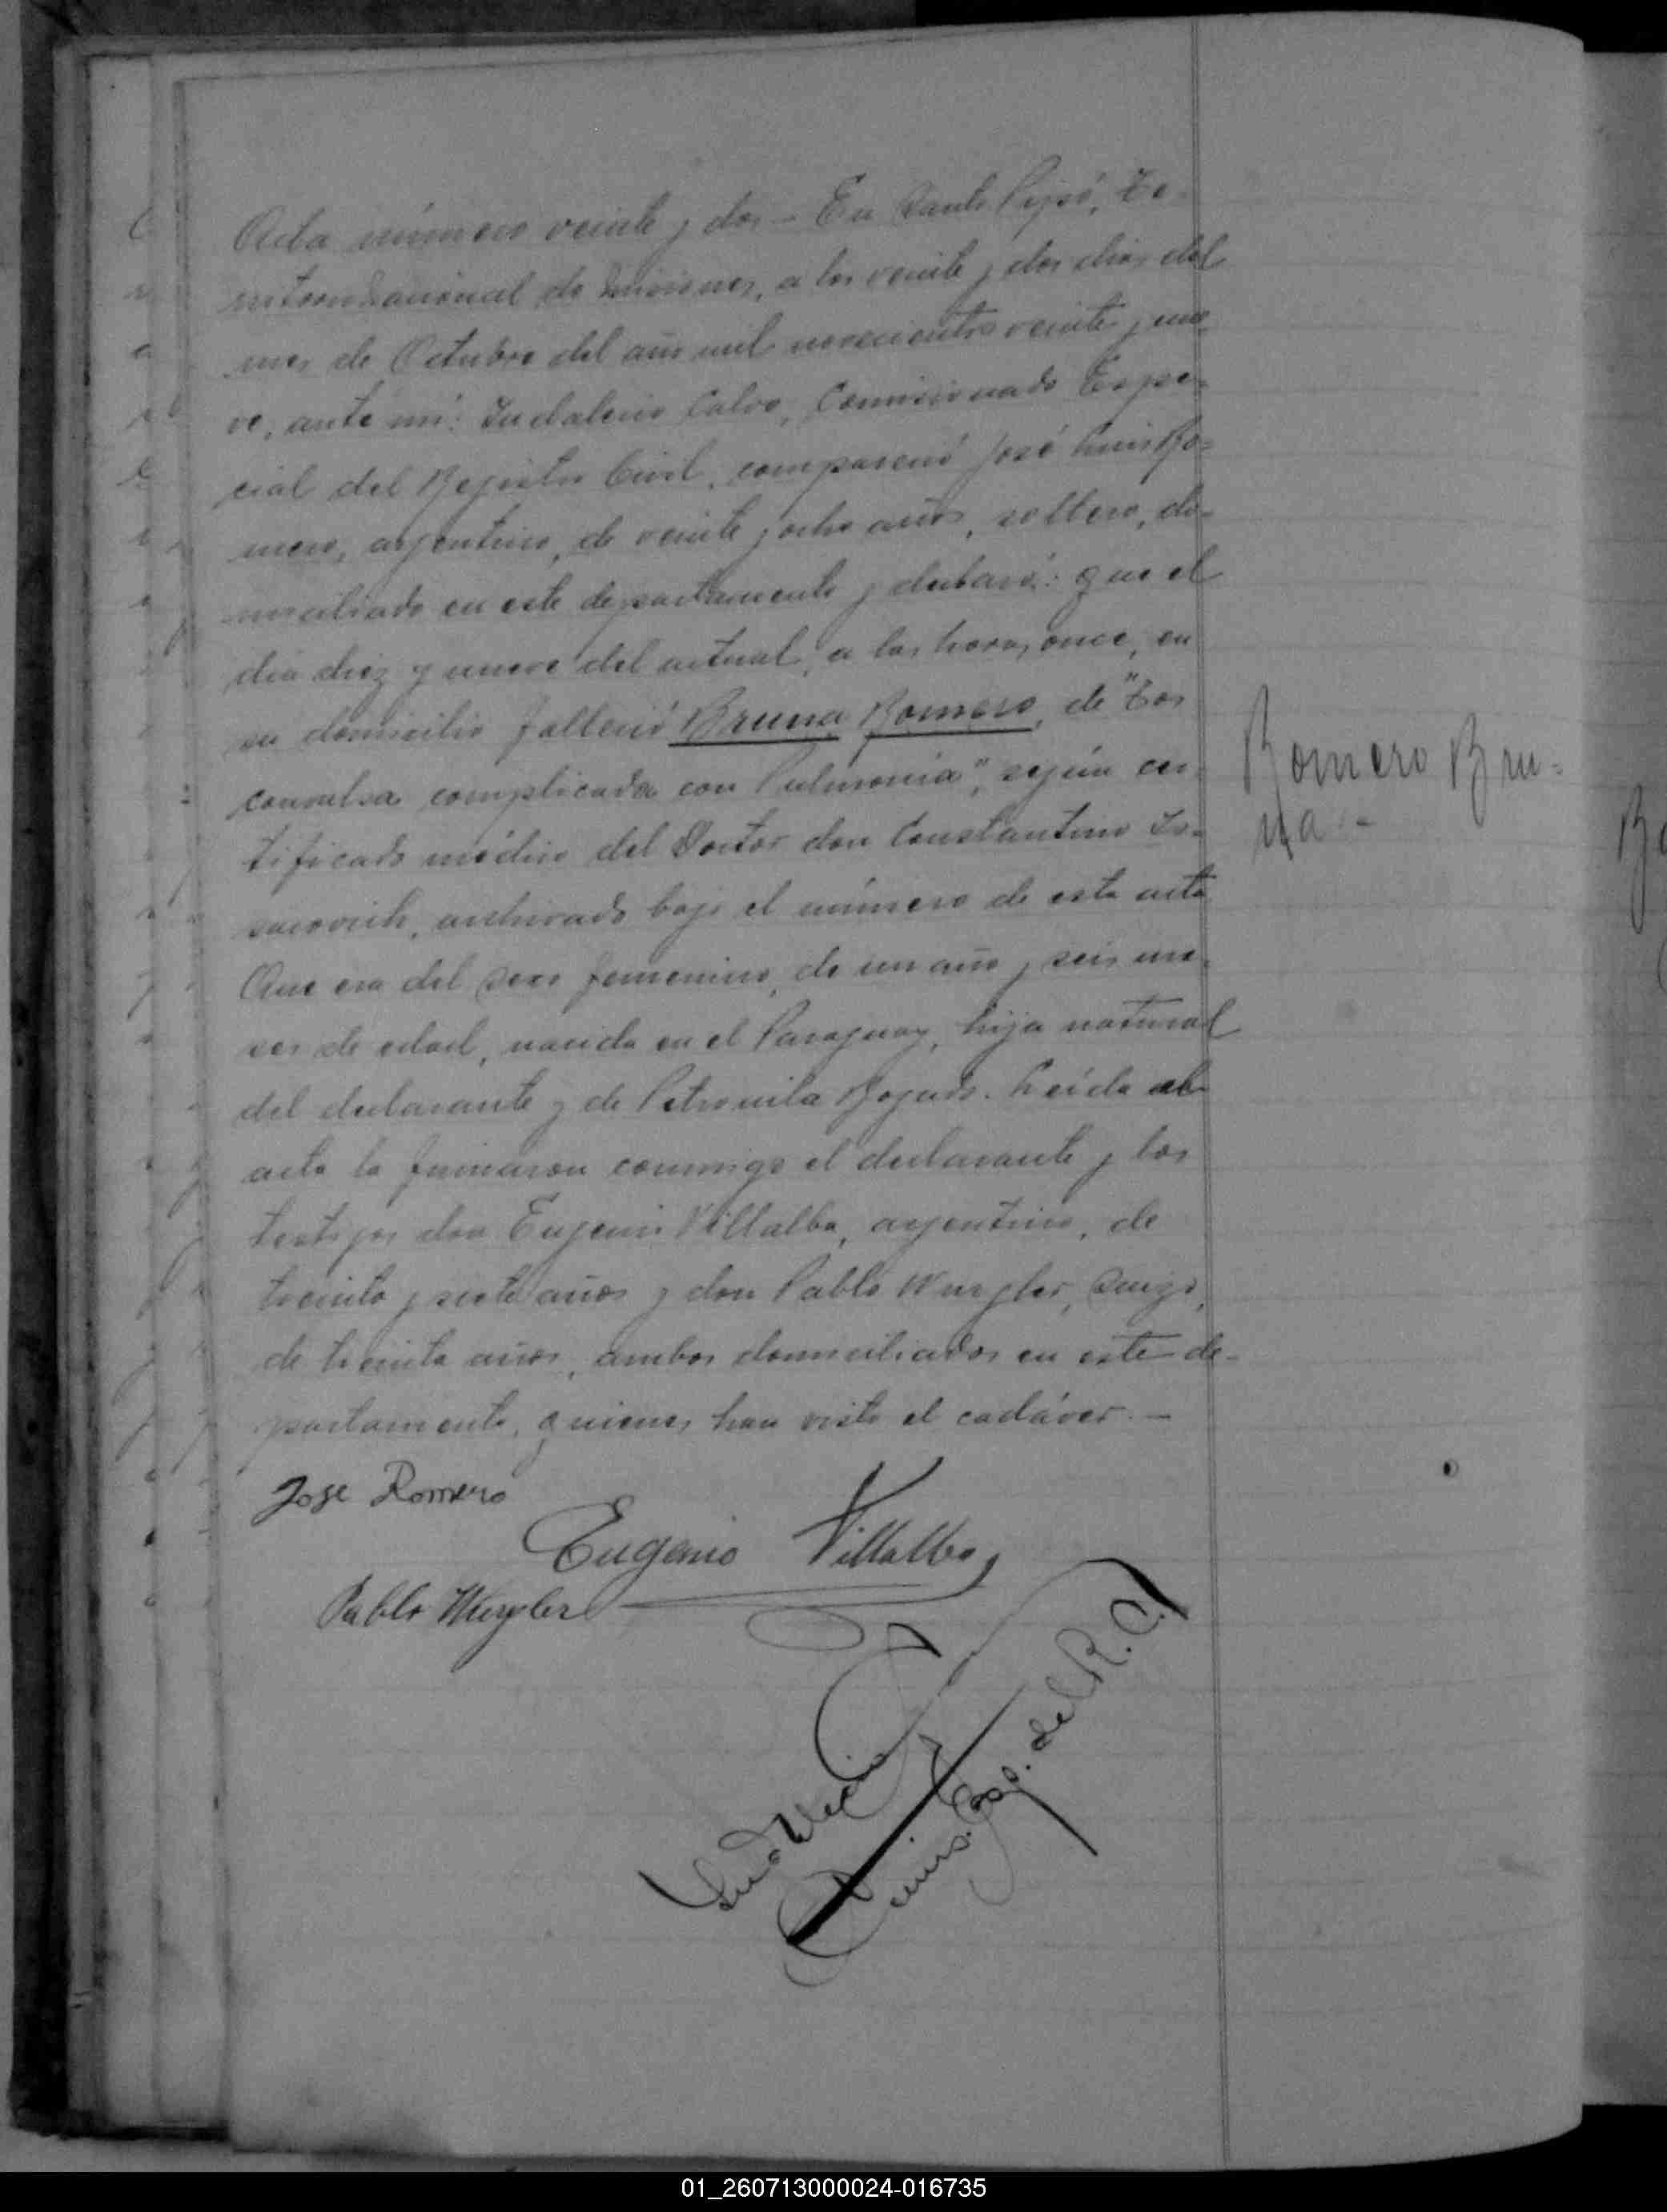 Acta número veinte y dos – En Santo Pipó, Te-
rritorio Nacional de Misiones, a los veinte y dos dias del
mes de Octubre del año mil novecientos veinte y nue-
ve, ante mi: Indalecio Calvo, Comisionado Espe-
cial del Registro Civil, compareció José Luis Ro-
mero, argentino, de veinte y ocho años, soltero, do-
miciliado en este departamento y declaró: que el
dia diez y nueve del actual, a las horas once, en
su domicilio falleció Bruna Romero, de "Tos
convulsa complicada con Pulmonia", según cer-
tificado médico del Doctor don Constantino
archivado bajo el número de esta acta
Que era del sexo femenino, de un año y seis me-
ses de edad, nacida en el Paraguay, hija natural
del declarante y de Petronila Leida el
acta la firmaron conmigo el declarante y los
testigos don Eugenio Villalba, argentino, de
treinta y siete años y don Pablo Wurgler, Suizo,
de treinta años, ambos domiciliados en este de-
partamento, quienes han visto el cadáver. –
Romero Bru-
na.-
Jose Romero
Eugenio Villalba
Pablo Wurgler
Indalecio Calvo
Comis. Esp. del R. C.
01_260713000024-016735